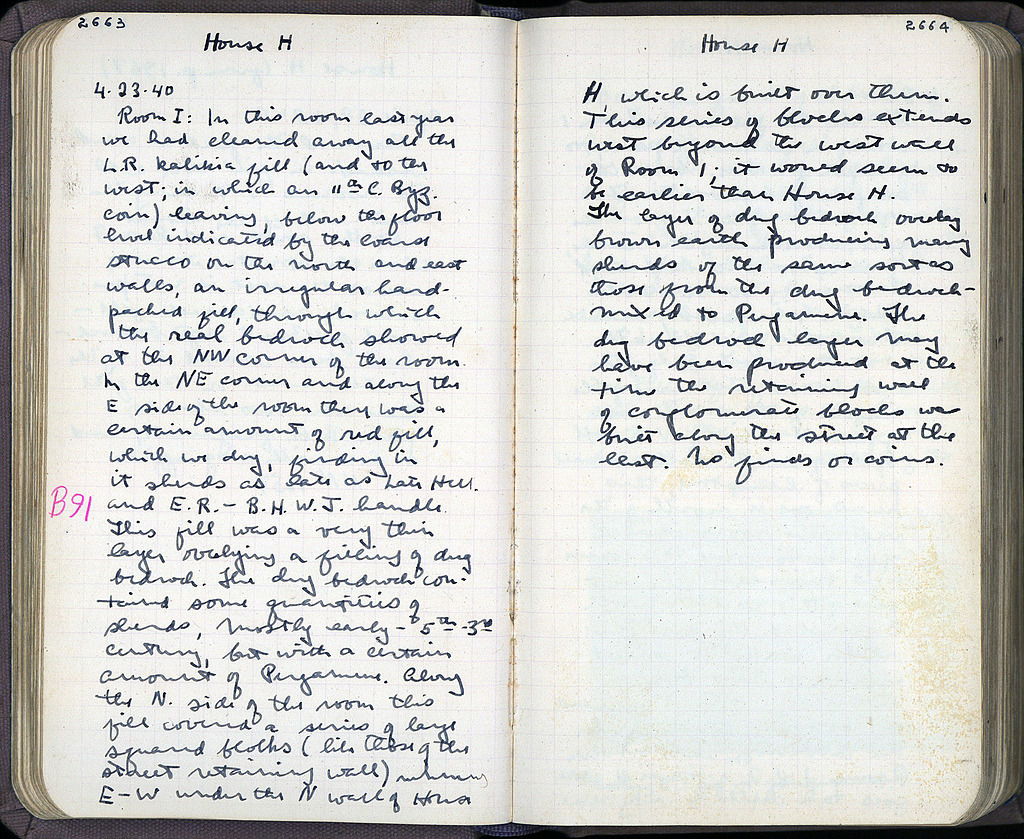 2663
House H
4.23.40
Room I: In this room last year
we had cleared away all the
L.R. kalikia fill (and to the
west; in which an 11th C. Byz.
coin) leaving, below the floor
level indicated by the coarse
stucco on the north and east
walls, an irregular hard-
packed fill, through which
the real bedrock showed
at the NW corner of the room.
In the NE corner and along the
E side of the room there was a
certain amount of red fill,
which we dug, finding in
it sherds as late as Late Hell.
and E.R. - B.H. W.J. handle.
B91
This fill was a very thin
layer overlying a filling of dug
bedrock. The dug bedrock con-
tained some quantities of
sherds, mostly early - 5th-3rd
century, but with a certain
amount of Pergamene. Along
the N. side of the room this
fill covered a series of large
squared blocks (like those of the
street retaining wall) running
E-W under the N wall of House
2664
House H
H, which is built over them.
This series of blocks extends
west beyond the west wall
of Room 1; it would seem to
be earlier than House H.
The layer of dug bedrock overlay
brown earth producing many
sherds of the same sort as
those from the dug bedrock -
mixed to Pergamene. The
dug bedrock layer may
have been produced at the
time the retaining wall
of conglomerate blocks was
built along the street at the
east. No finds or coins.